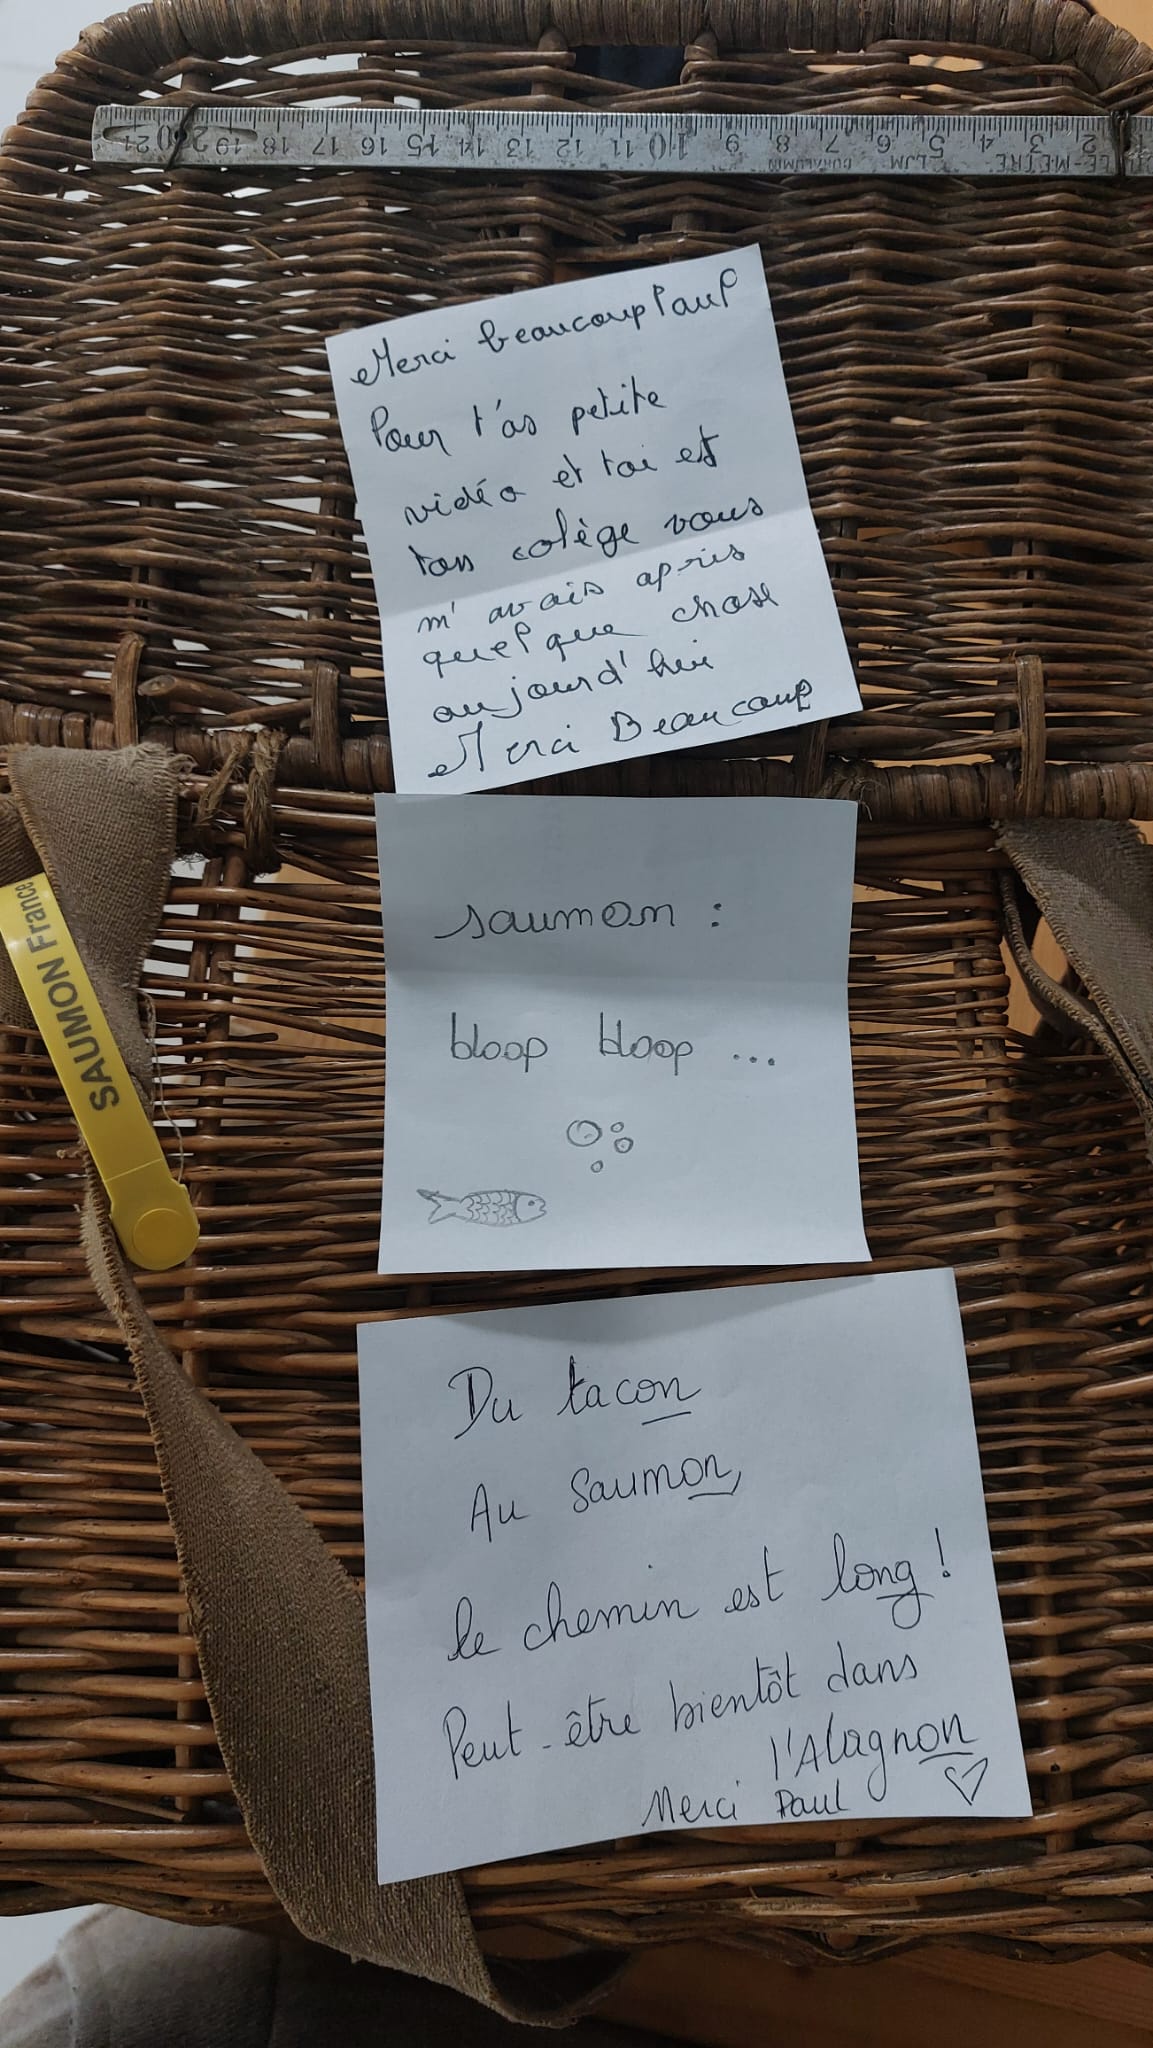 21 20 19 18 17 16 15 14 13 12 11 10 9 8 7 6 5 4 3 2
LE-METRE ELJM DURALUMIN
Merci beaucoup Paul
Pour t'as petite
vidéo et toi est
ton colège vous
m'avais apris
quelque chose
aujourd'hui
Merci Beaucoup
SAUMON France
saumon :
bloop bloop ...
Du tacon
Au Saumon,
le chemin est long !
Peut-être bientôt dans
l'Alagnon
Merci Paul